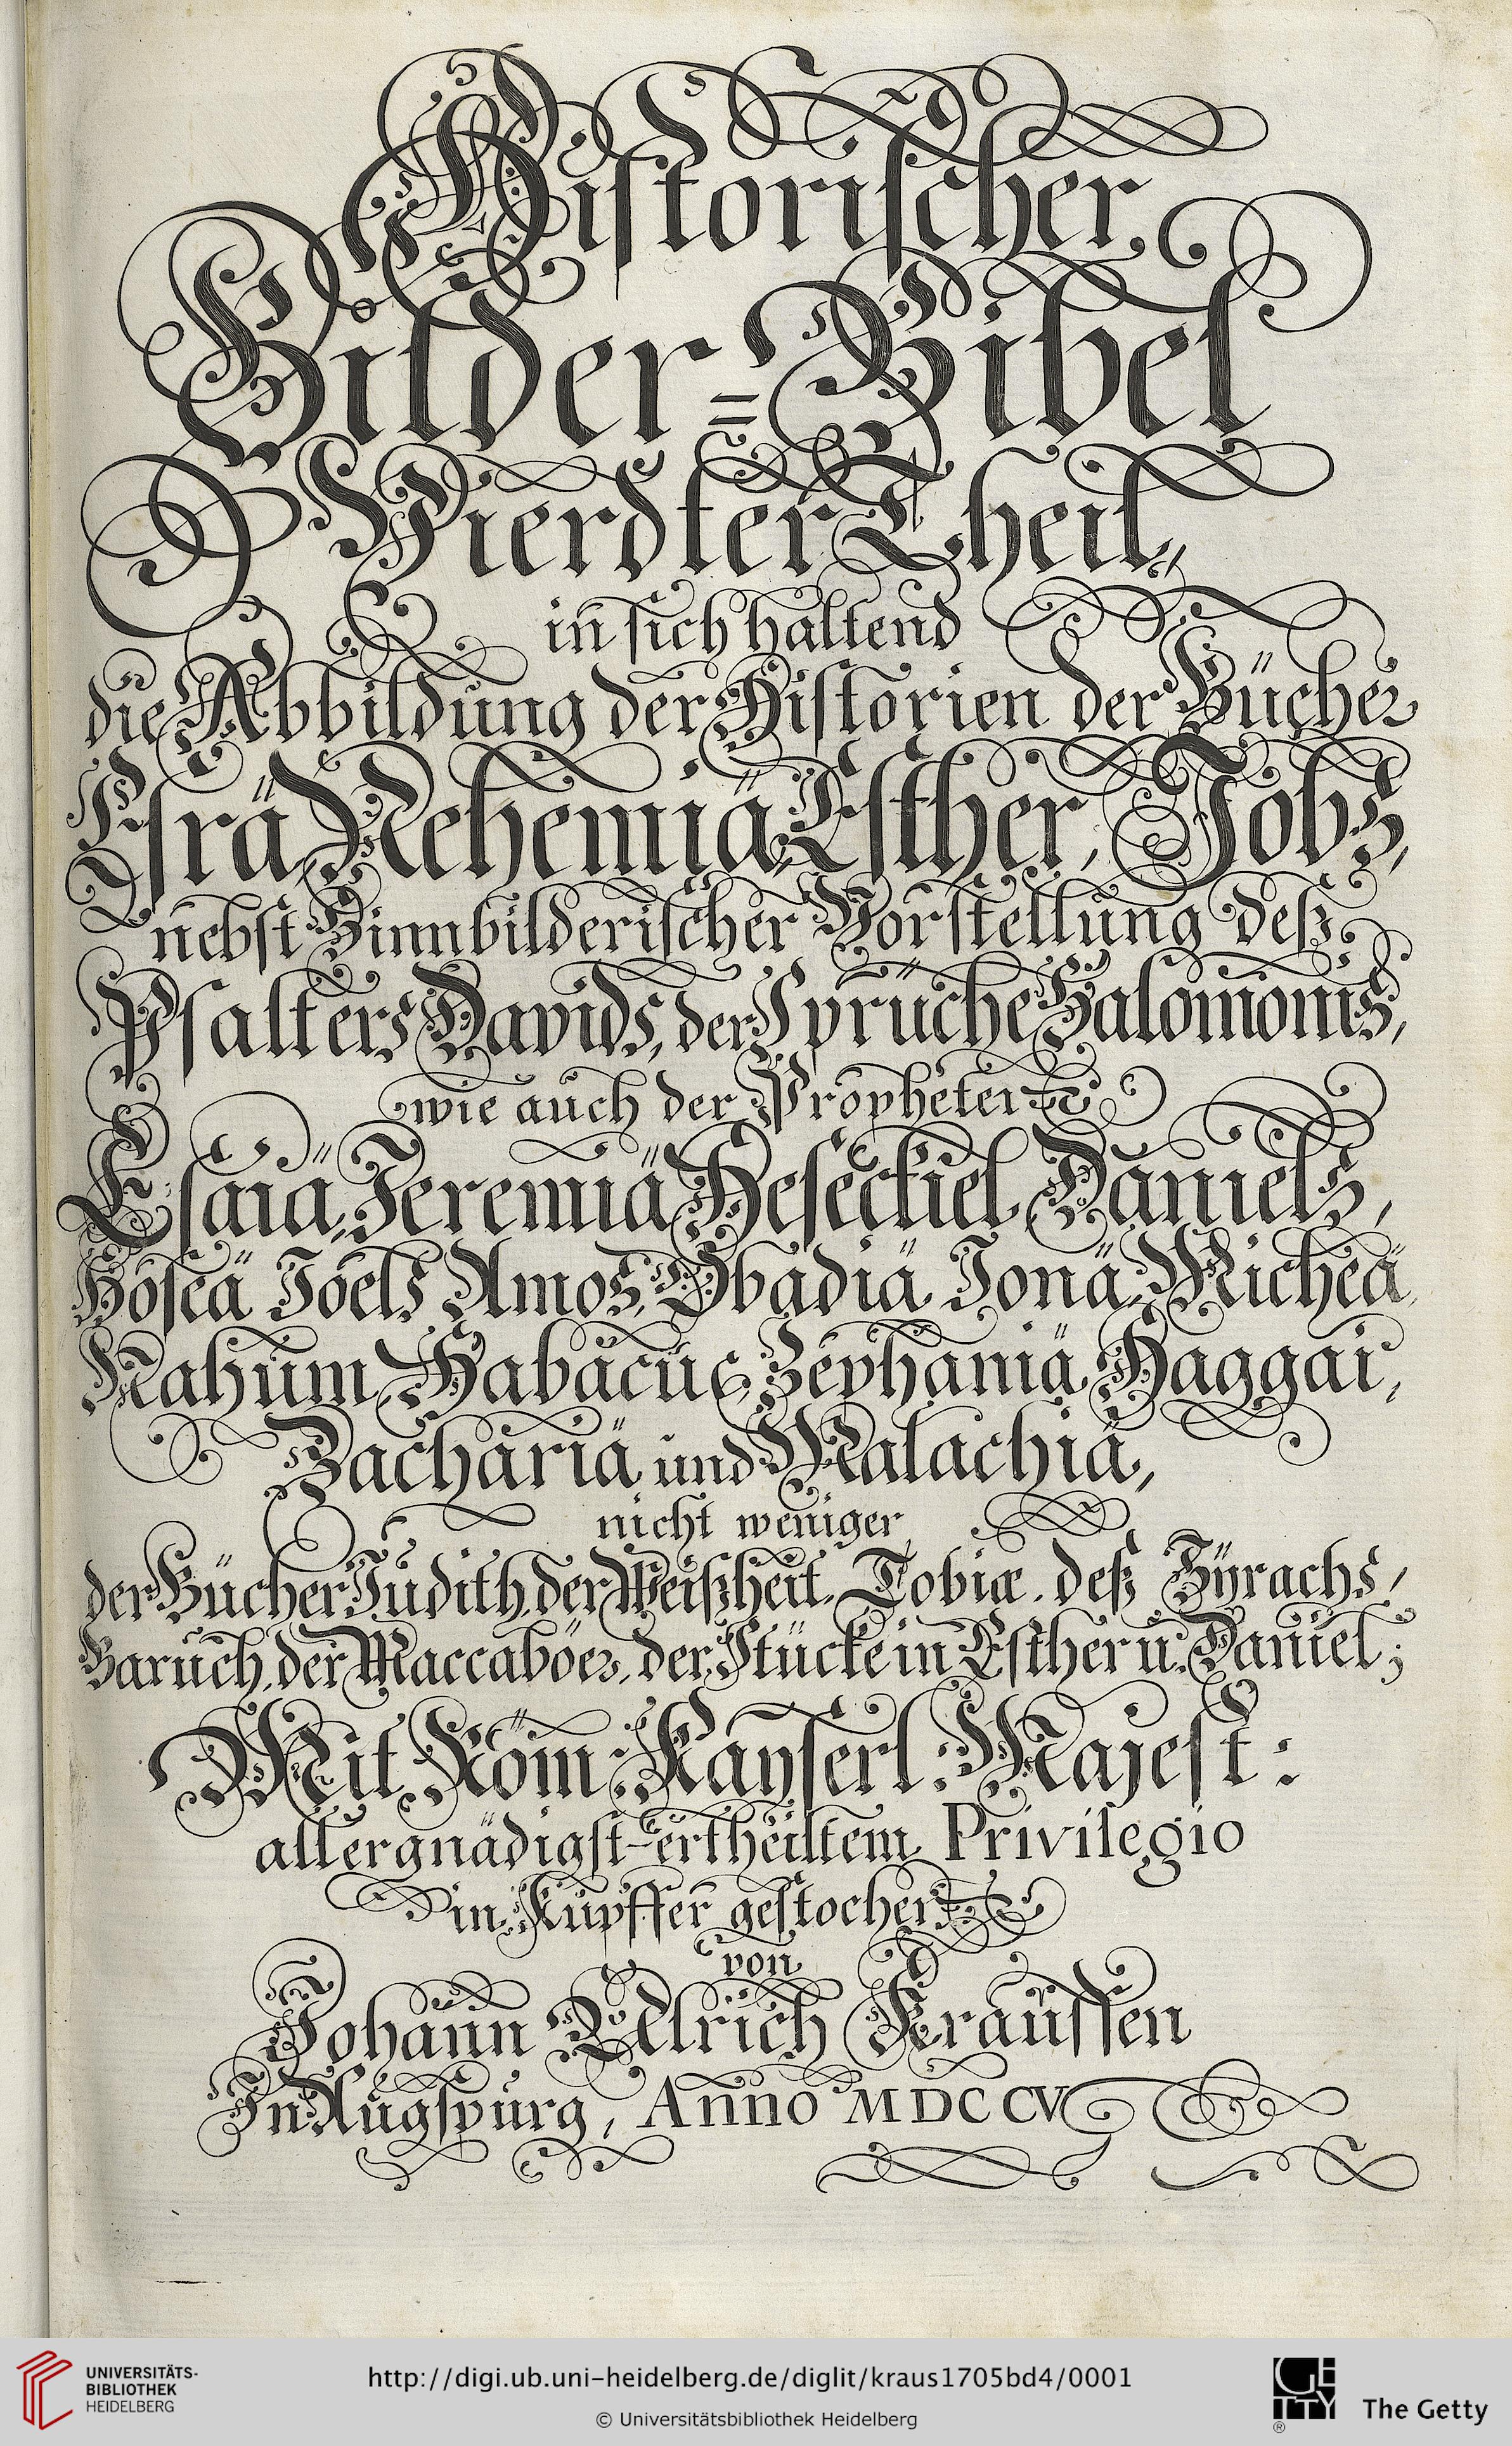 Historischer
Bilder=Bibel
Vierdter Theil,
in sich haltend
die Abbildung der Historien der Bücher
Esrä Nehemiä, Esther, Jobs,
nebst Sinnbilderischer Vorstellung deß
Psalters Davids, der Sprüche Salomonis,
wie auch der Propheten
Esaiä, Jeremiä Heseckiel Daniels,
Hoseä Joels Amos, Obadiä Jonä, Micheä
Nahum Habacuc Zephaniä Haggai,
Zachariä und Malachiä,
nicht weniger
der Bücher Judith, der Weißheit, Tobiæ. deß Syrachs,
Baruch, der Maccaböer, der Stücke in Esther u. Daniel;
Mit Röm: Kayserl: Majest:
allergnädigst-ertheiltem Privilegio
in Kupffer gestochen
von
Johann Ulrich Kraussen
In Augspurg, Anno MDCCV
UNIVERSITÄTS-
BIBLIOTHEK
HEIDELBERG
http://digi.ub.uni-heidelberg.de/diglit/kraus1705bd4/0001
© Universitätsbibliothek Heidelberg
GETTY
®
The Getty